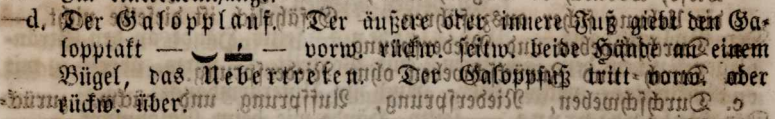 d. Der Galopplauf. Der äußere oder innere Fuß giebt den Ga-
lopptakt — ⏑ — vorw. rückw. seitw. beide Hände an einem
Bügel, das Uebertreten. Der Galoppfuß tritt vorw. oder
rückw. über.